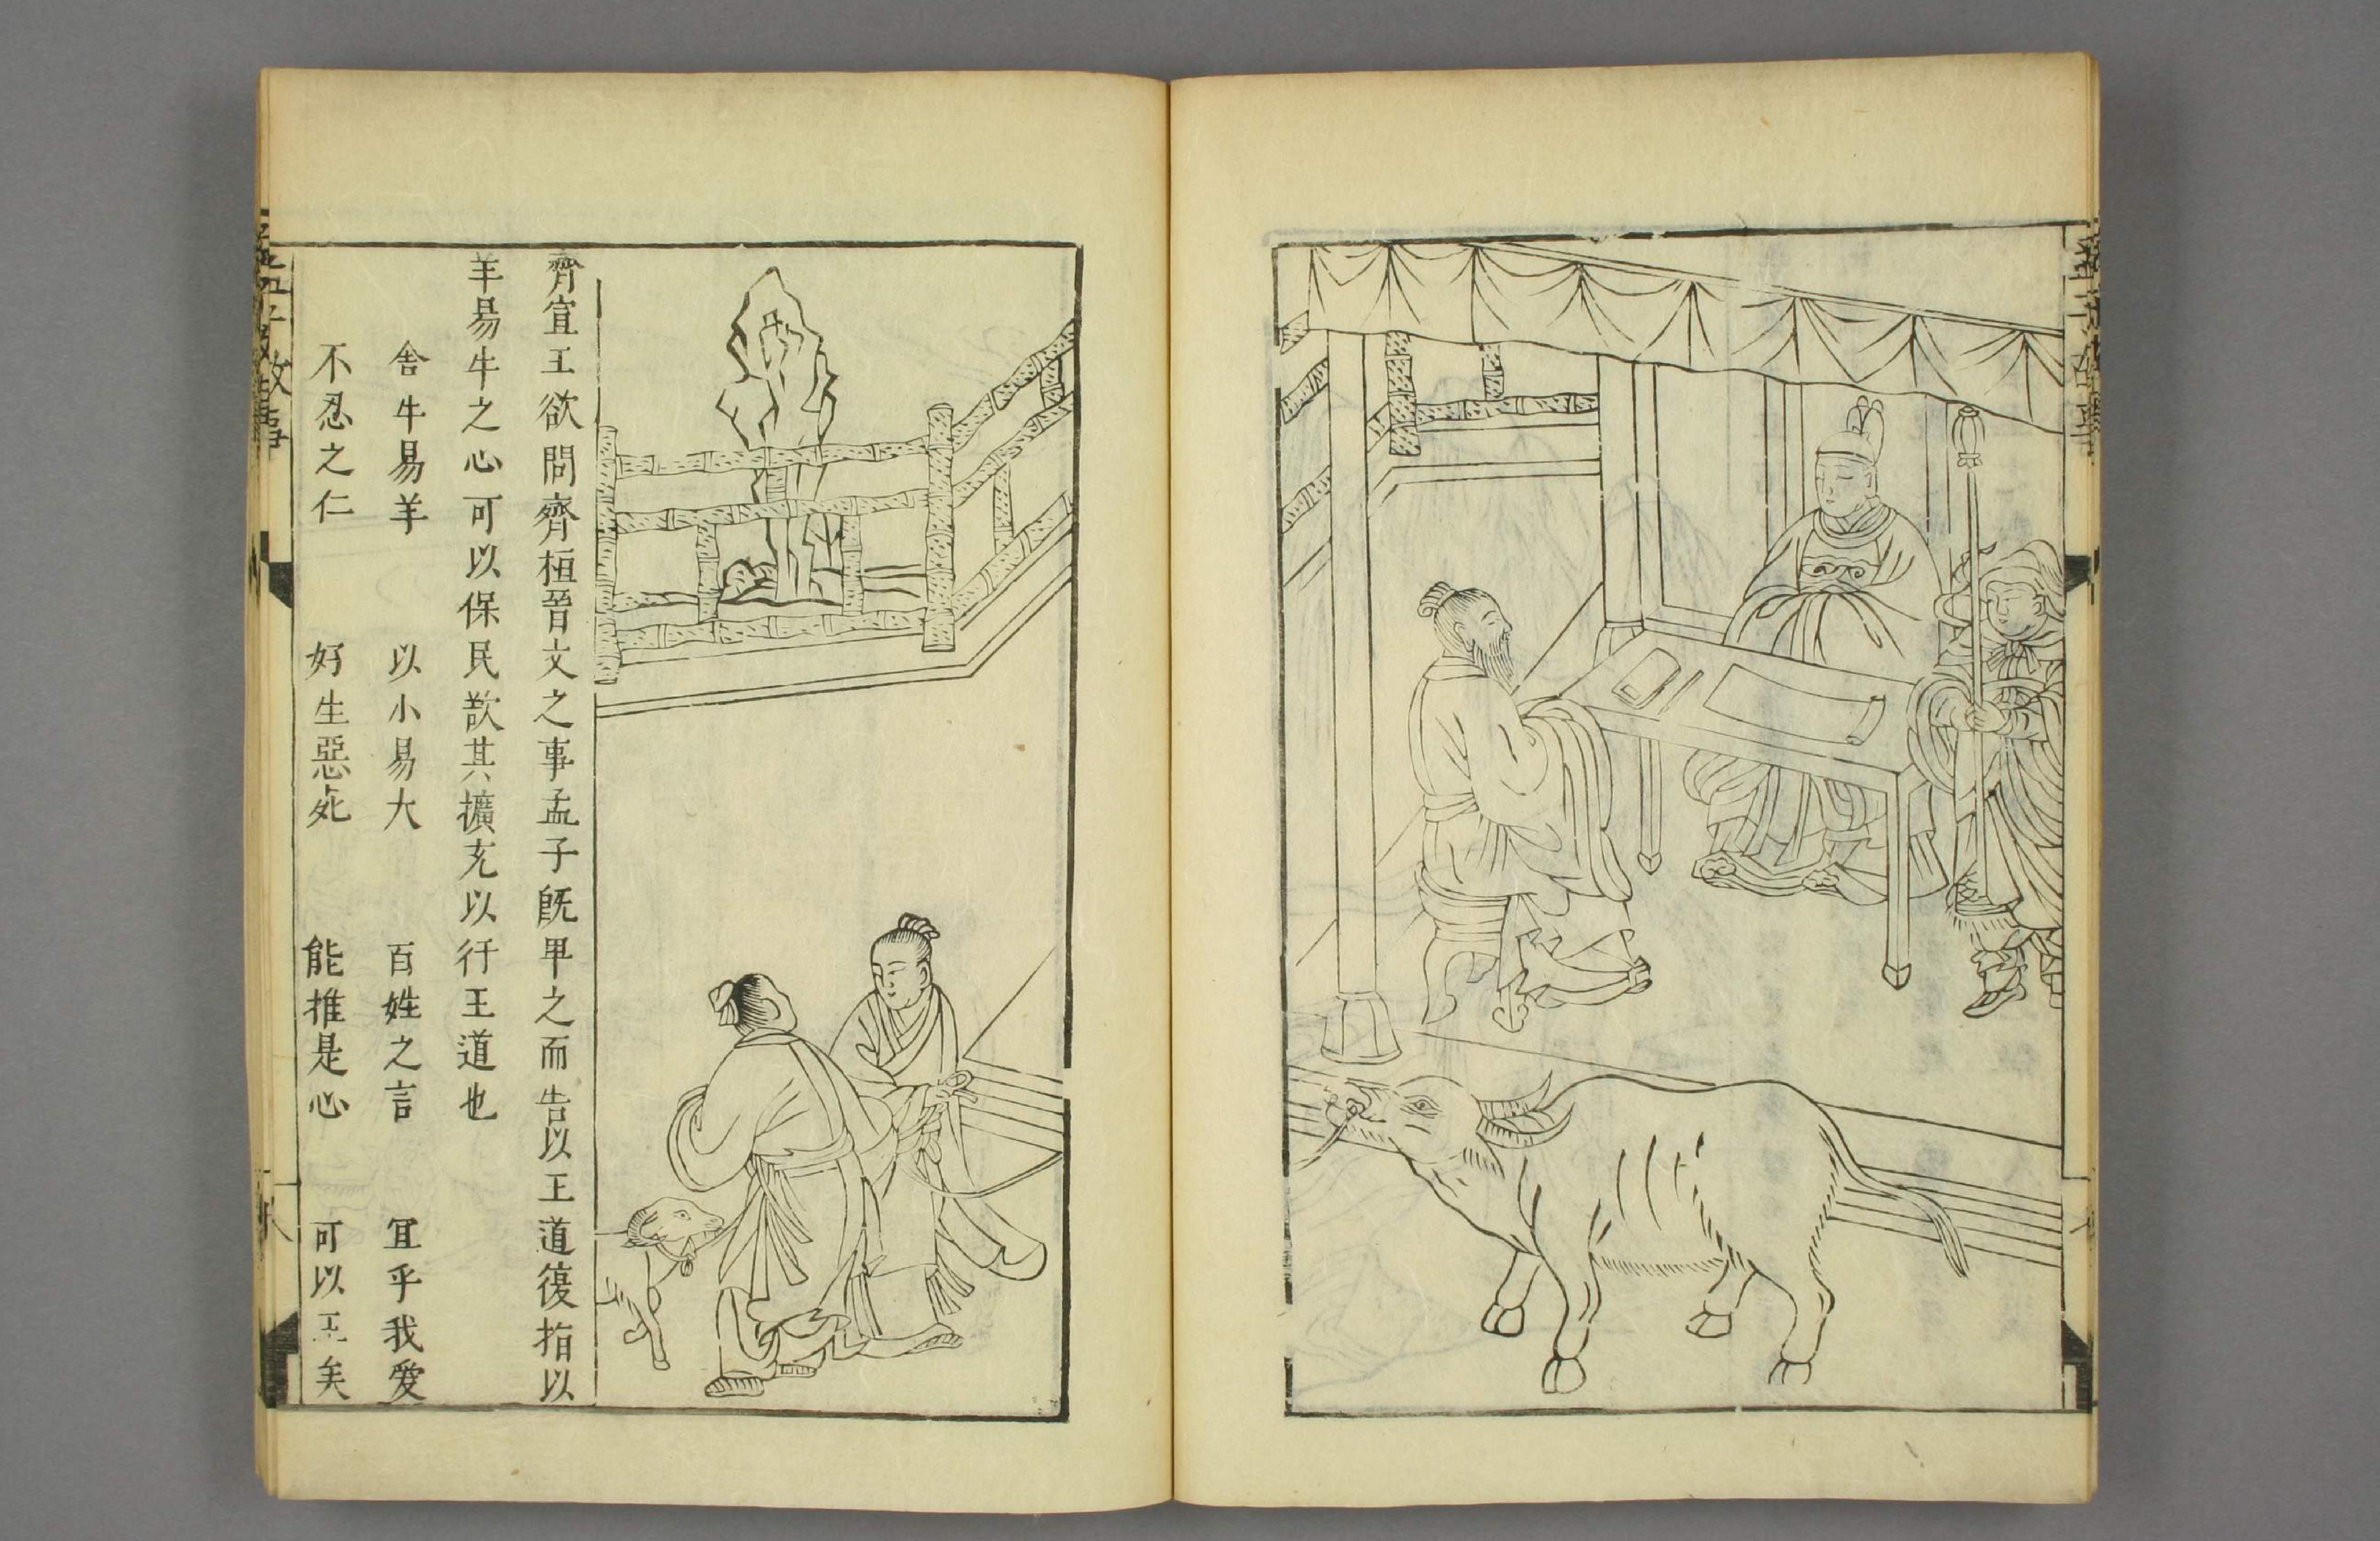 齊宣王欲問齊桓晉文之事孟子旣卑之而告以王道復指以
羊易牛之心可以保民欲其擴充以行王道也
舍牛易羊 以小易大 百姓之言 宜乎我愛
不忍之仁 好生惡死 能推是心 可以王矣
故事